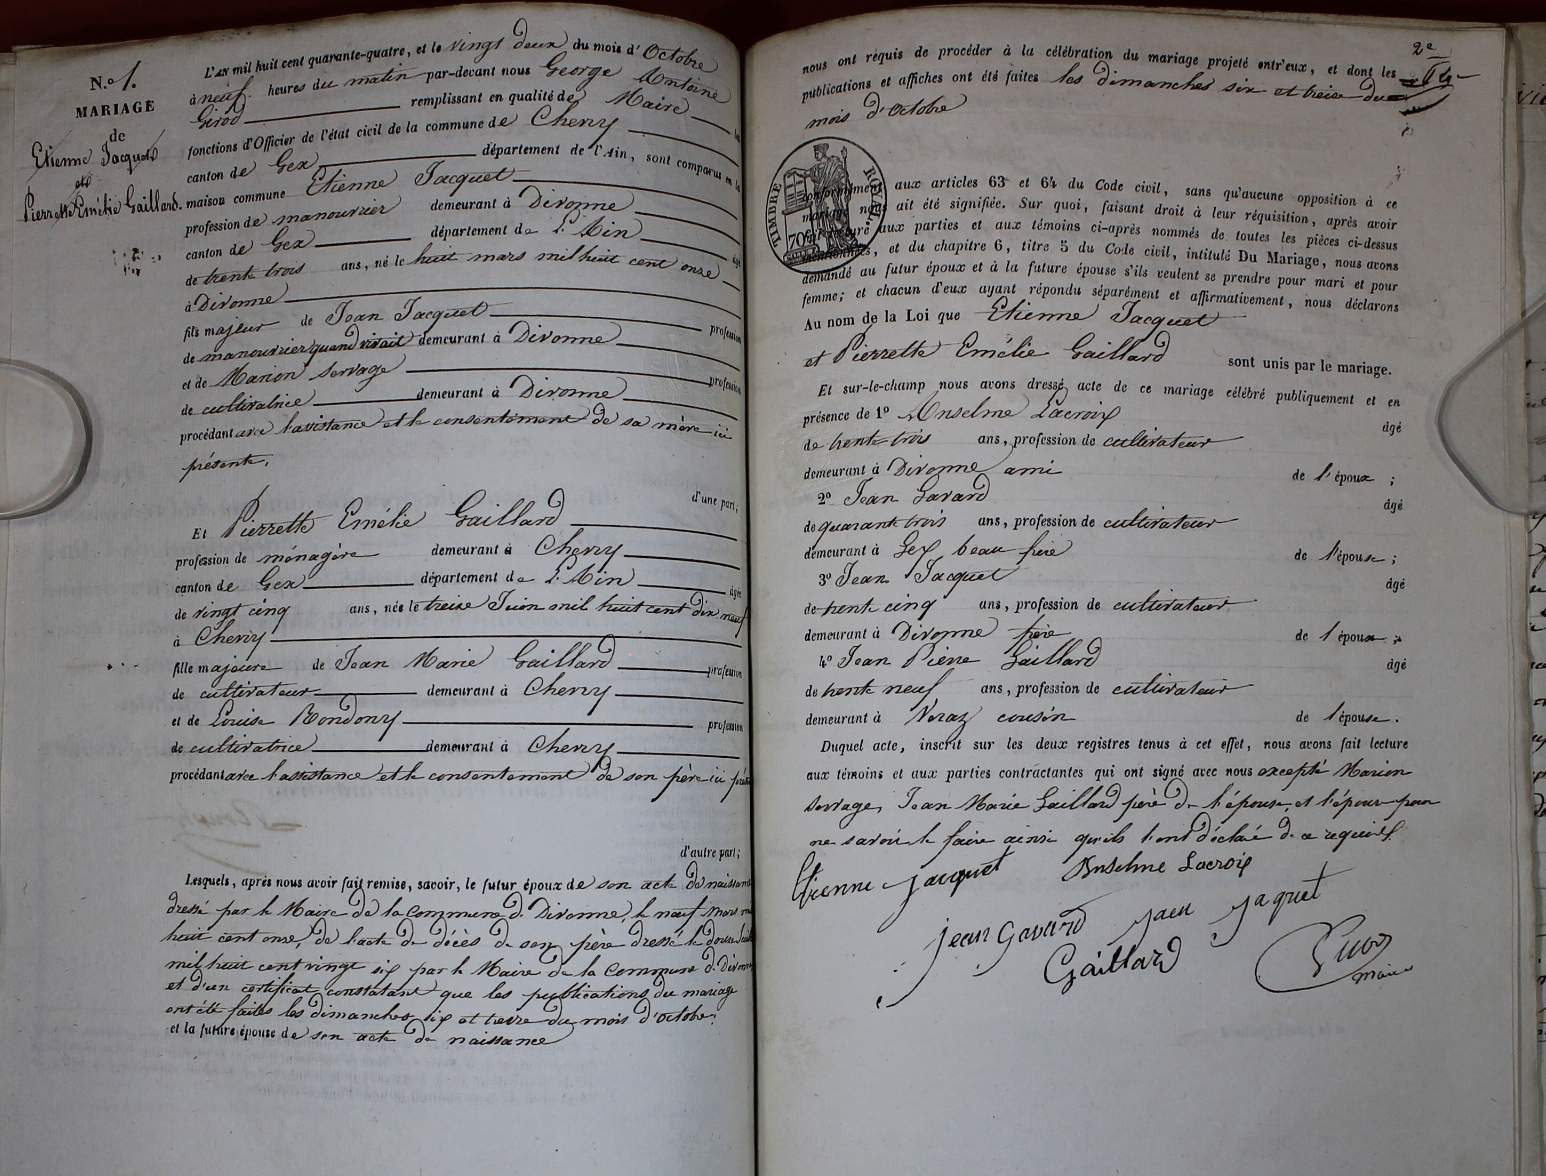 N.o 1.
MARIAGE
de
Etienne Jacquet
et
Pierrette Emélie Gaillard.
L'AN mil huit cent quarante-quatre, et le vingt deux du mois d'Octobre
à neuf heures du matin par-devant nous George Antoine
Girod remplissant en qualité de Maire les
fonctions d'Officier de l'état civil de la commune de Chevry
canton de Gex département de l'Ain, sont comparus en la
maison commune Etienne Jacquet
profession de manouvrier demeurant à Divonne
canton de Gex département de L'Ain âgé
de trente trois ans, né le huit mars mil huit cent onze
à Divonne
fils majeur de Jean Jacquet profession
de manouvrier quand vivait demeurant à Divonne
et de Marion Servage profession
de cultivatrice demeurant à Divonne
procédant avec l'assistance et le consentement de sa mère ici
présente.
d'une part;
Et Pierrette Emélie Gaillard
profession de ménagère demeurant à Chevry
canton de Gex département de L'Ain âgée
de vingt cinq ans, née le treize Juin mil huit cent dix neuf
à Chevry
fille majeure de Jean Marie Gaillard profession
de cultivateur demeurant à Chevry
et de Louise Rondony profession
de cultivatrice demeurant à Chevry
procédant avec l'assistance et le consentement de son père ici
d'autre part;
Lesquels, après nous avoir fait remise, savoir, le futur époux de son acte de naissance
dressé par le Maire de la Commune de Divonne, le neuf Mars mil
huit cent onze, de l'acte de décès de son père dressé le douze
mil huit cent vingt six par le Maire de la Commune de Divonne
et d'un certificat constatant que les publications du mariage
ont été faites les dimanches six et treize du mois d'octobre.
et la future épouse de son acte de naissance
2e
nous ont réquis de procéder à la célébration du mariage projeté entr'eux, et dont les
publications et affiches ont été faites les dimanches six et treize du
mois d'Octobre
TIMBRE ROYAL
70
conformément aux articles 63 et 64 du Code civil, sans qu'aucune opposition à ce
mariage nous ait été signifiée. Sur quoi, faisant droit à leur réquisition, après avoir
fait lecture aux parties et aux témoins ci-après nommés de toutes les pièces ci-dessus
mentionnées, et du chapitre 6, titre 5 du Code civil, intitulé Du Mariage, nous avons
demandé au futur époux et à la future épouse s'ils veulent se prendre pour mari et pour
femme; et chacun d'eux ayant répondu séparément et affirmativement, nous déclarons
Au nom de la Loi que Etienne Jacquet
et Pierrette Emélie Gaillard sont unis par le mariage.
Et sur-le-champ nous avons dressé acte de ce mariage célébré publiquement et en
présence de 1º Anselme Lacroix âgé
de trente trois ans, profession de cultivateur
demeurant à Divonne ami de l'époux ;
2º Jean Gavard âgé
de quarante trois ans, profession de cultivateur
demeurant à Gex beau frère de l'épouse ;
3º Jean Jacquet âgé
de trente cinq ans, profession de cultivateur
demeurant à Divonne frère de l'époux ;
4º Jean Pierre Gaillard âgé
de trente neuf ans, profession de cultivateur
demeurant à Veraz cousin de l'épouse.
Duquel acte, inscrit sur les deux registres tenus à cet effet, nous avons fait lecture
aux témoins et aux parties contractantes qui ont signé avec nous excepté Marion
Servage, Jean Marie Gaillard père de l'épouse, et l'épouse pour
ne savoir le faire ainsi qu'ils l'ont déclaré de ce requis.
Etienne jacquet Anselme Lacroix
jean Gavard jaen jaquet
Gaillard Girod
maire